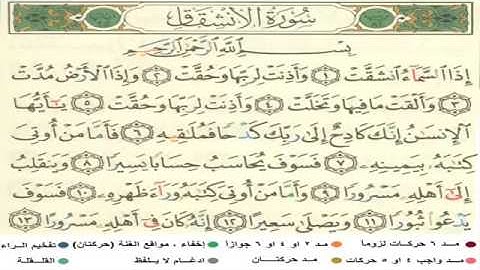 سُورَةُ الِانْشِقَاقِ
بِسْمِ اللَّهِ الرَّحْمَٰنِ الرَّحِيمِ
إِذَا السَّمَاءُ انشَقَّتْ ١ وَأَذِنَتْ لِرَبِّهَا وَحُقَّتْ ٢ وَإِذَا الْأَرْضُ مُدَّتْ
٣ وَأَلْقَتْ مَا فِيهَا وَتَخَلَّتْ ٤ وَأَذِنَتْ لِرَبِّهَا وَحُقَّتْ ٥ يَٰأَيُّهَا
الْإِنسَٰنُ إِنَّكَ كَادِحٌ إِلَىٰ رَبِّكَ كَدْحًا فَمُلَٰقِيهِ ٦ فَأَمَّا مَنْ أُوتِيَ
كِتَٰبَهُ بِيَمِينِهِ ٧ فَسَوْفَ يُحَاسَبُ حِسَابًا يَسِيرًا ٨ وَيَنقَلِبُ
إِلَىٰ أَهْلِهِ مَسْرُورًا ٩ وَأَمَّا مَنْ أُوتِيَ كِتَٰبَهُ وَرَاءَ ظَهْرِهِ ١٠ فَسَوْفَ
يَدْعُوا ثُبُورًا ١١ وَيَصْلَىٰ سَعِيرًا ١٢ إِنَّهُ كَانَ فِي أَهْلِهِ مَسْرُورًا ١٣
مد ٦ حركات لزوماً مد ٢ او ٤ او ٦ جوازاً إخفاء ، مواقع الغنة (حركتان) تفخيم الراء
مد واجب ٤ او ٥ حركات مد حركتان ادغام ، ما لا يلفظ القلقلة